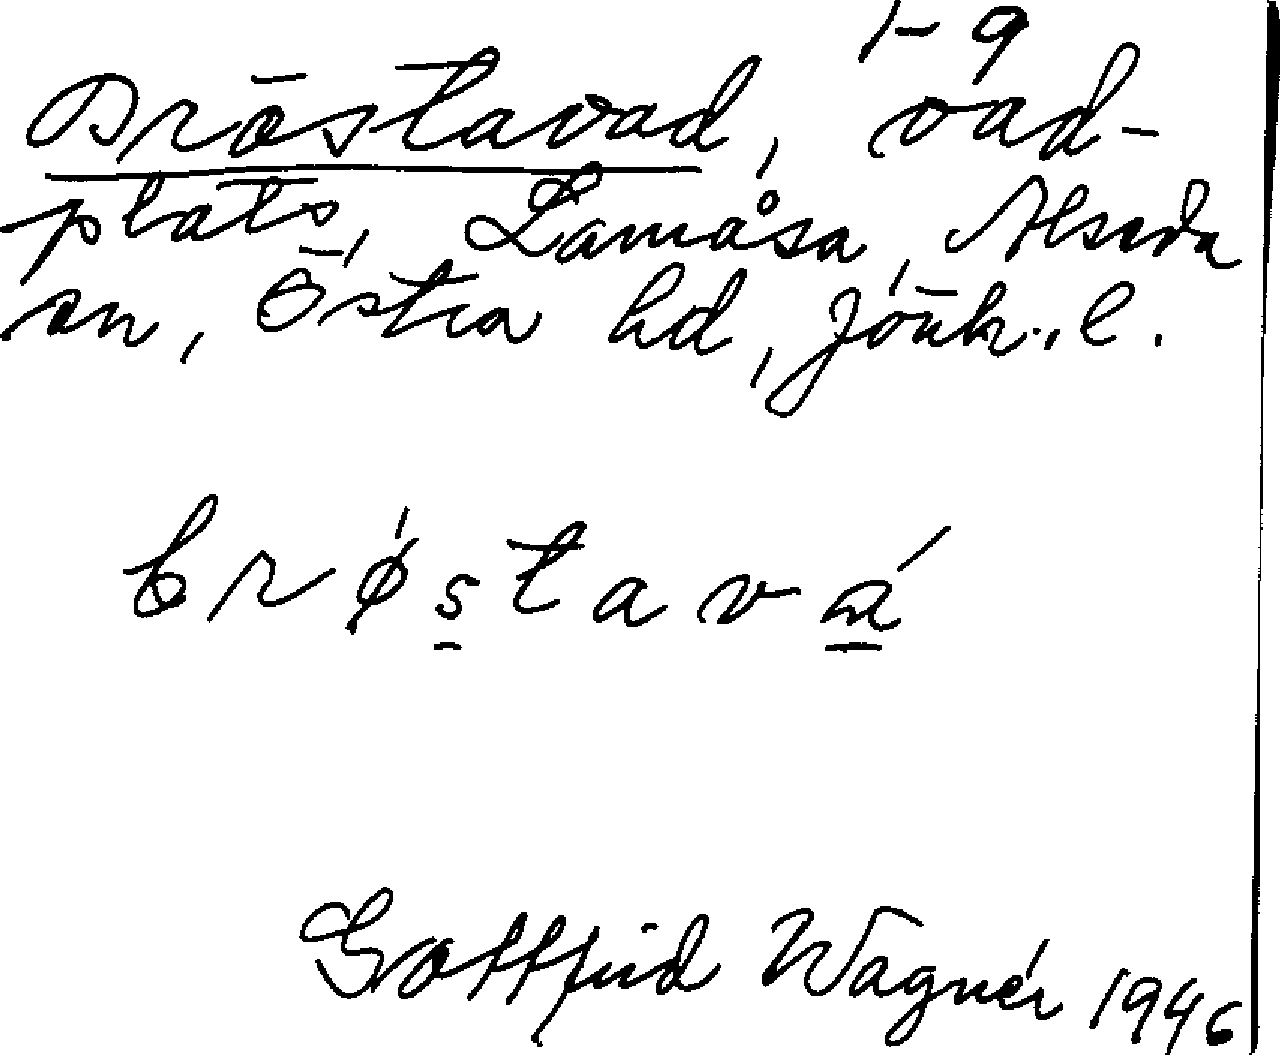 1-9
Bröstavad, vad-
plats, Lamåsa, Alseda
sn, Östra hd, Jönk.l.
brøstavá
Gottfrid Wagnér 1946